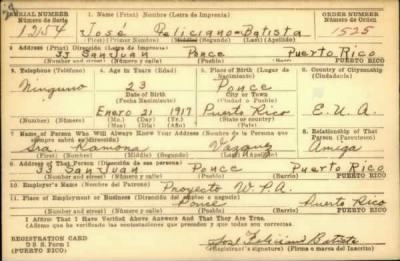 SERIAL NUMBER 1. Name (Print) Nombre (Letra de Imprenta) ORDER NUMBER
Número de Serie Número de Orden
1254 José Feliciano-Batista 1525
(First) (Primer Nombre) (Middle) (Last) (Apellido)
2 Address (Print) Dirección (Letra de Imprenta)
33 San Juan Ponce Puerto Rico
(Number and street) (Número y calle) (Town) (Municipio) PUERTO RICO
3. Telephone (Teléfono) 4. Age in Years (Edad) 5. Place of Birth (Lugar de Nacimiento) 6. Country of Citizenship (Ciudadanía)
Ninguno 23 Ponce
Date of Birth City or Town
(Fecha Nacimiento) (Ciudad o Pueblo)
Enero 21 1917 Puerto Rico E. U. A.
(Mo.) (Day) (Yr.) (State or country)
(Mes) (Día) (Año) (Estado o país)
7 Name of Person Who Will Always Know Your Address (Nombre de la Persona que siempre sabrá su dirección) 8. Relationship of That Person (Parentesco)
Sra. Ramona Vazquez Amiga
9 Address of That Person (Dirección de esa persona)
33 San Juan Ponce Puerto Rico
(Number and street) (Número y calle) (Town) (Municipio) PUERTO RICO
10 Employer's Name (Nombre del Patrono)
Proyecto W. P. A.
11 Place of Employment or Business (Dirección del empleo o negocio)
Ponce Puerto Rico
(Number and street) (Número y calle) (Town) (Municipio) PUERTO RICO
I Affirm That I Have Verified Above Answers And That They Are True.
(Afirmo que he verificado las contestaciones que preceden y que todas son correctas.
REGISTRATION CARD
D S S. Form 1 José Feliciano Batista
(Registrant's signature) (Firma o marca del Inscrito)